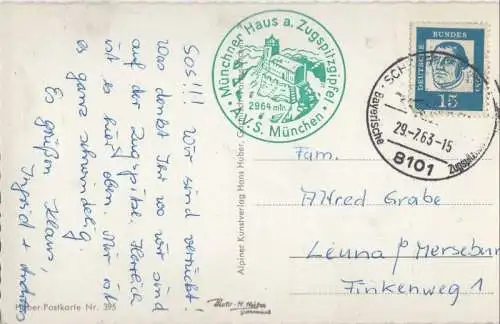 SOS!!! Wir sind verrückt!
Was denkt Ihr wo wir sind
auf der Zugspitze. Herrlich
ist es hier oben. Mir ist
es ganz schwindelig
Es grüßen Klaus,
Ingrid +
Huber-Postkarte Nr. 395
Münchner Haus a. Zugspitzgipfel
2964 m
A.V.S. München
Alpiner Kunstverlag Hans Huber,
Photo-H. Huber
Garmisch
DEUTSCHE
BUNDES
15
Bayerische
29.-7.63-15
8101
Fam.
Alfred Grabe
Leuna / Merseburg
Finkenweg 1